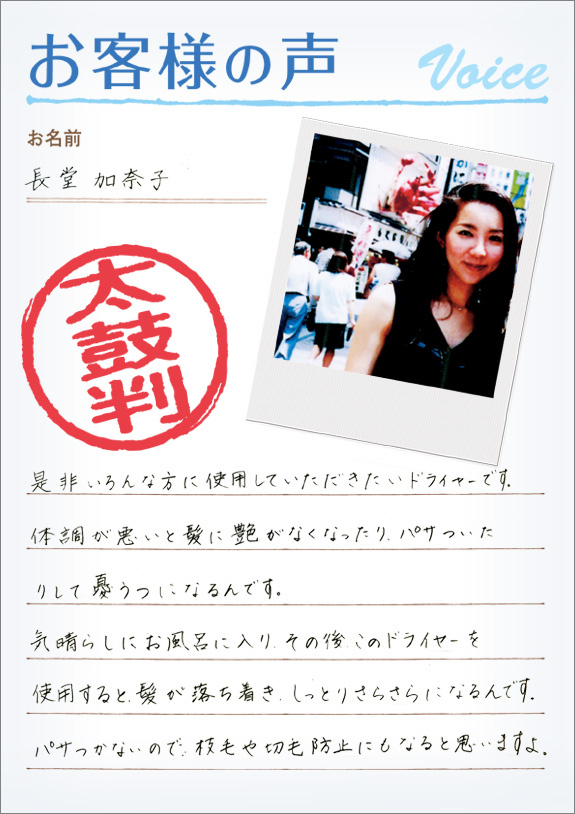 お客様の声
Voice
お名前
長堂 加奈子
太鼓判
是非いろんな方に使用していただきたいドライヤーです。
体調が悪いと髪に艶がなくなったり、パサついた
りして憂うつになるんです。
気晴らしにお風呂に入り、その後、このドライヤーを
使用すると、髪が落ち着き、しっとりさらさらになるんです。
パサつかないので、枝毛や切毛防止にもなると思いますよ。